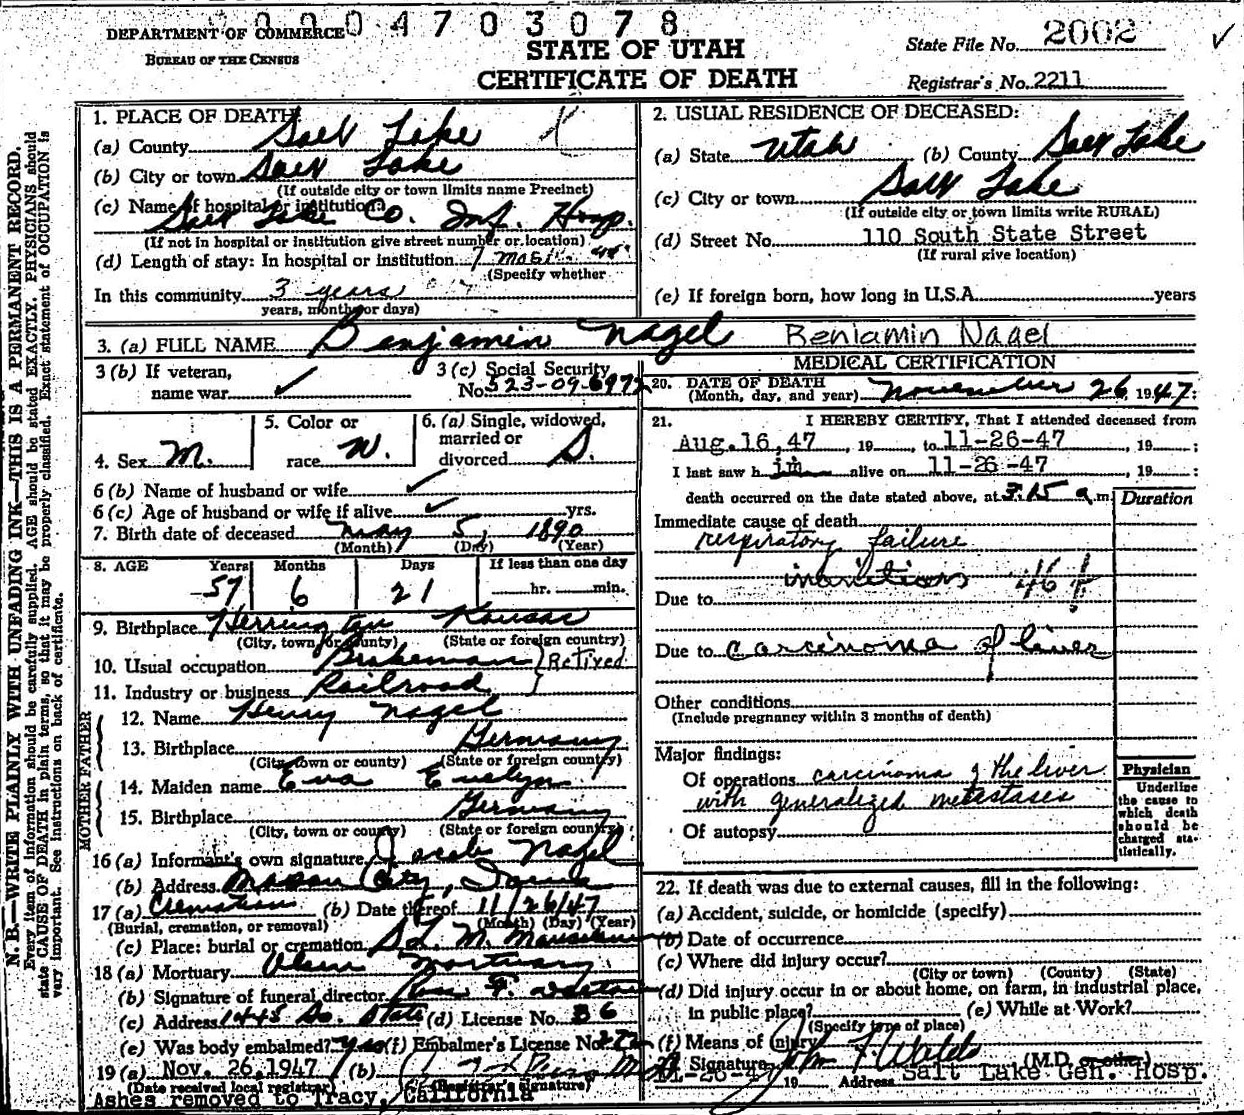 0004703078
DEPARTMENT OF COMMERCE
BUREAU OF THE CENSUS
STATE OF UTAH
CERTIFICATE OF DEATH
State File No. 2002
Registrar's No. 2211
N. B.—WRITE PLAINLY WITH UNFADING INK—THIS IS A PERMANENT RECORD.
Every item of information should be carefully supplied. AGE should be stated EXACTLY. PHYSICIANS should
state CAUSE OF DEATH in plain terms, so that it may be properly classified. Exact statement of OCCUPATION is
very important. See instructions on back of certificate.
1. PLACE OF DEATH
(a) County Salt Lake
(b) City or town Salt Lake
(If outside city or town limits name Precinct)
(c) Name of hospital or institution:
Salt Lake Co. Inf. Hosp.
(If not in hospital or institution give street number or location)
(d) Length of stay: In hospital or institution 7 mos.
(Specify whether
In this community 3 years
years, months or days)
2. USUAL RESIDENCE OF DECEASED:
(a) State Utah (b) County Salt Lake
(c) City or town Salt Lake
(If outside city or town limits write RURAL)
(d) Street No. 110 South State Street
(If rural give location)
(e) If foreign born, how long in U.S.A. years
3. (a) FULL NAME Benjamin Nagel Benjamin Nagel
3 (b) If veteran,
name war
3 (c) Social Security
No. 523-09-6972
4. Sex M.
5. Color or
race W.
6. (a) Single, widowed,
married or
divorced S.
6 (b) Name of husband or wife
6 (c) Age of husband or wife if alive yrs.
7. Birth date of deceased May 5, 1890
(Month) (Day) (Year)
8. AGE Years Months Days If less than one day
57 6 21 hr. min.
9. Birthplace Herrington Kansas
(City, town or county) (State or foreign country)
10. Usual occupation Brakeman Retired
11. Industry or business Railroad
FATHER
12. Name Henry Nagel
13. Birthplace Germany
(City town or county) (State or foreign country)
MOTHER
14. Maiden name Eva Evelyn
15. Birthplace Germany
(City, town or county) (State or foreign country)
16 (a) Informant's own signature Jacob Nagel
(b) Address Mason City, Iowa
17 (a) Cremation (b) Date thereof 11/26/47
(Burial, cremation, or removal) (Month) (Day) (Year)
(c) Place: burial or cremation S.L. M. Mausoleum
18 (a) Mortuary Olsen Mortuary
(b) Signature of funeral director
(c) Address 1445 So. State (d) License No. 36
(e) Was body embalmed? yes (f) Embalmer's License No.
19 (a) Nov. 26, 1947 (b) M.D.
(Date received local registrar) (Registrar's signature)
Ashes removed to Tracy, California
MEDICAL CERTIFICATION
20. DATE OF DEATH
(Month, day, and year) November 26 1947:
21. I HEREBY CERTIFY, That I attended deceased from
Aug. 16, 47, 19 , to 11-26-47, 19 ;
I last saw h im alive on 11-26-47, 19 :
death occurred on the date stated above, at 3:15 a.m.
Duration
Immediate cause of death
respiratory failure
inanition 46
Due to
Due to carcinoma of liver
Other conditions
(Include pregnancy within 3 months of death)
Major findings:
Of operations carcinoma of the liver
with generalized metastases
Of autopsy
Physician
Underline
the cause to
which death
should be
charged sta-
tistically.
22. If death was due to external causes, fill in the following:
(a) Accident, suicide, or homicide (specify)
(b) Date of occurrence
(c) Where did injury occur?
(City or town) (County) (State)
(d) Did injury occur in or about home, on farm, in industrial place,
in public place? (e) While at Work?
(Specify type of place)
(f) Means of injury
Signature John F. Waldo (M.D. or other)
11-26-47 19 Address Salt Lake Gen. Hosp.